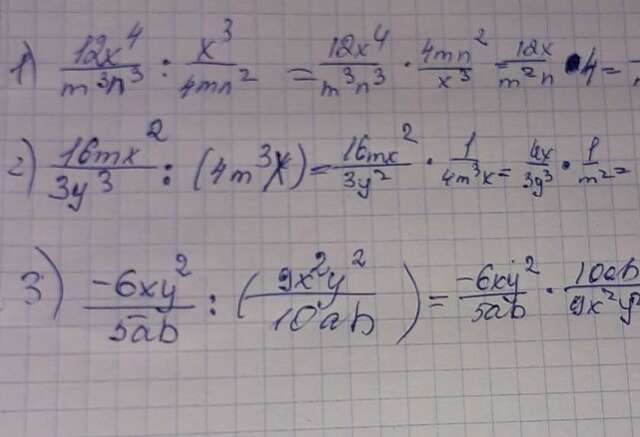 1) 12x⁴/m³n³ : x³/4mn² = 12x⁴/m³n³ · 4mn²/x³ = 12x/m²n · 4 =
2) 16mx²/3y³ : (4m³x) = 16mx²/3y² · 1/4m³x = 4x/3y³ · 1/m² =
3) -6xy²/5ab : (9x²y²/10ab) = -6xy²/5ab · 10ab/9x²y²